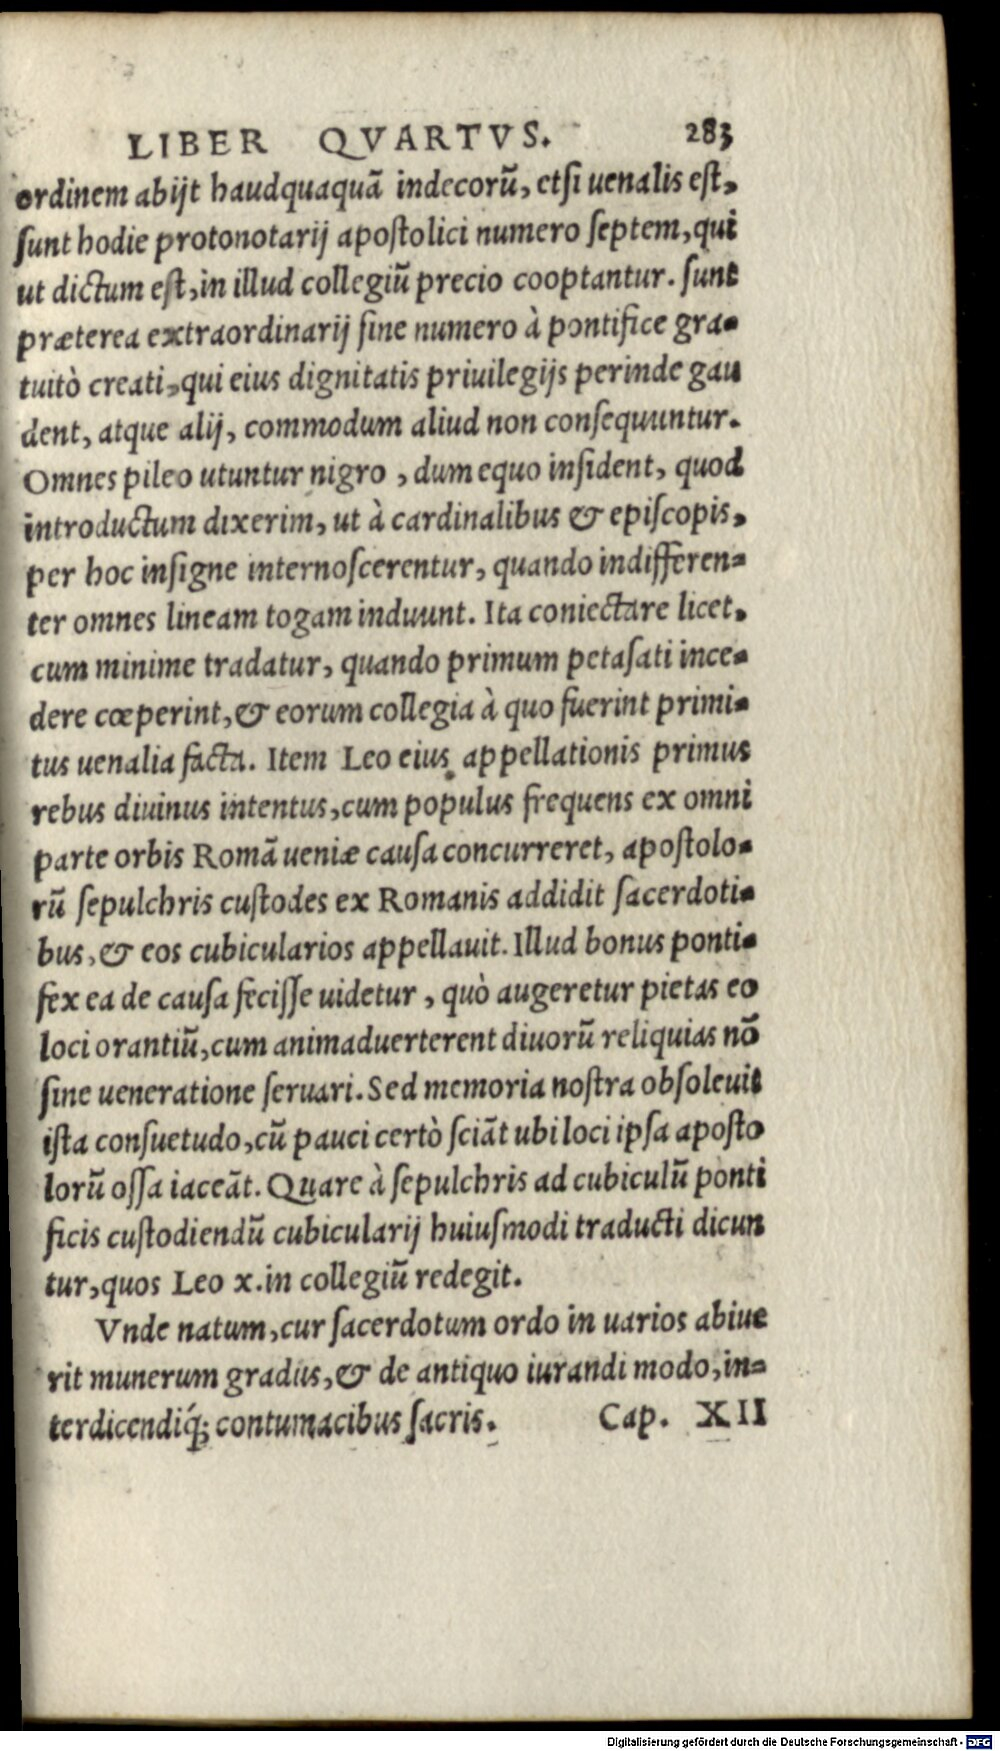 LIBER QVARTVS. 283
ordinem abijt haudquaquā indecorū, etſi uenalis eſt,
ſunt hodie protonotarij apoſtolici numero ſeptem, qui
ut dictum eſt, in illud collegiū precio cooptantur. ſunt
præterea extraordinarij ſine numero à pontifice gra-
tuitò creati, qui eius dignitatis priuilegijs perinde gau
dent, atque alij, commodum aliud non conſequuntur.
Omnes pileo utuntur nigro, dum equo inſident, quod
introductum dixerim, ut à cardinalibus & epiſcopis,
per hoc inſigne internoſcerentur, quando indifferen-
ter omnes lineam togam induunt. Ita coniectare licet,
cum minime tradatur, quando primum petaſati ince-
dere cœperint, & eorum collegia à quo fuerint primi-
tus uenalia facta. Item Leo eius appellationis primus
rebus diuinus intentus, cum populus frequens ex omni
parte orbis Romā ueniæ cauſa concurreret, apoſtolo-
rū ſepulchris cuſtodes ex Romanis addidit ſacerdoti-
bus, & eos cubicularios appellauit. Illud bonus ponti-
fex ea de cauſa feciſſe uidetur, quò augeretur pietas eo
loci orantiū, cum animaduerterent diuorū reliquias nō
ſine ueneratione ſeruari. Sed memoria noſtra obſoleuit
iſta conſuetudo, cū pauci certò ſciāt ubi loci ipſa apoſto
lorū oſſa iaceāt. Quare à ſepulchris ad cubiculū ponti
ficis cuſtodiendū cubicularij huiuſmodi traducti dicun
tur, quos Leo x. in collegiū redegit.
Vnde natum, cur ſacerdotum ordo in uarios abiue
rit munerum gradus, & de antiquo iurandi modo, in-
terdicendiq́; contumacibus ſacris. Cap. XII
Digitalisierung gefördert durch die Deutsche Forschungsgemeinschaft - DFG